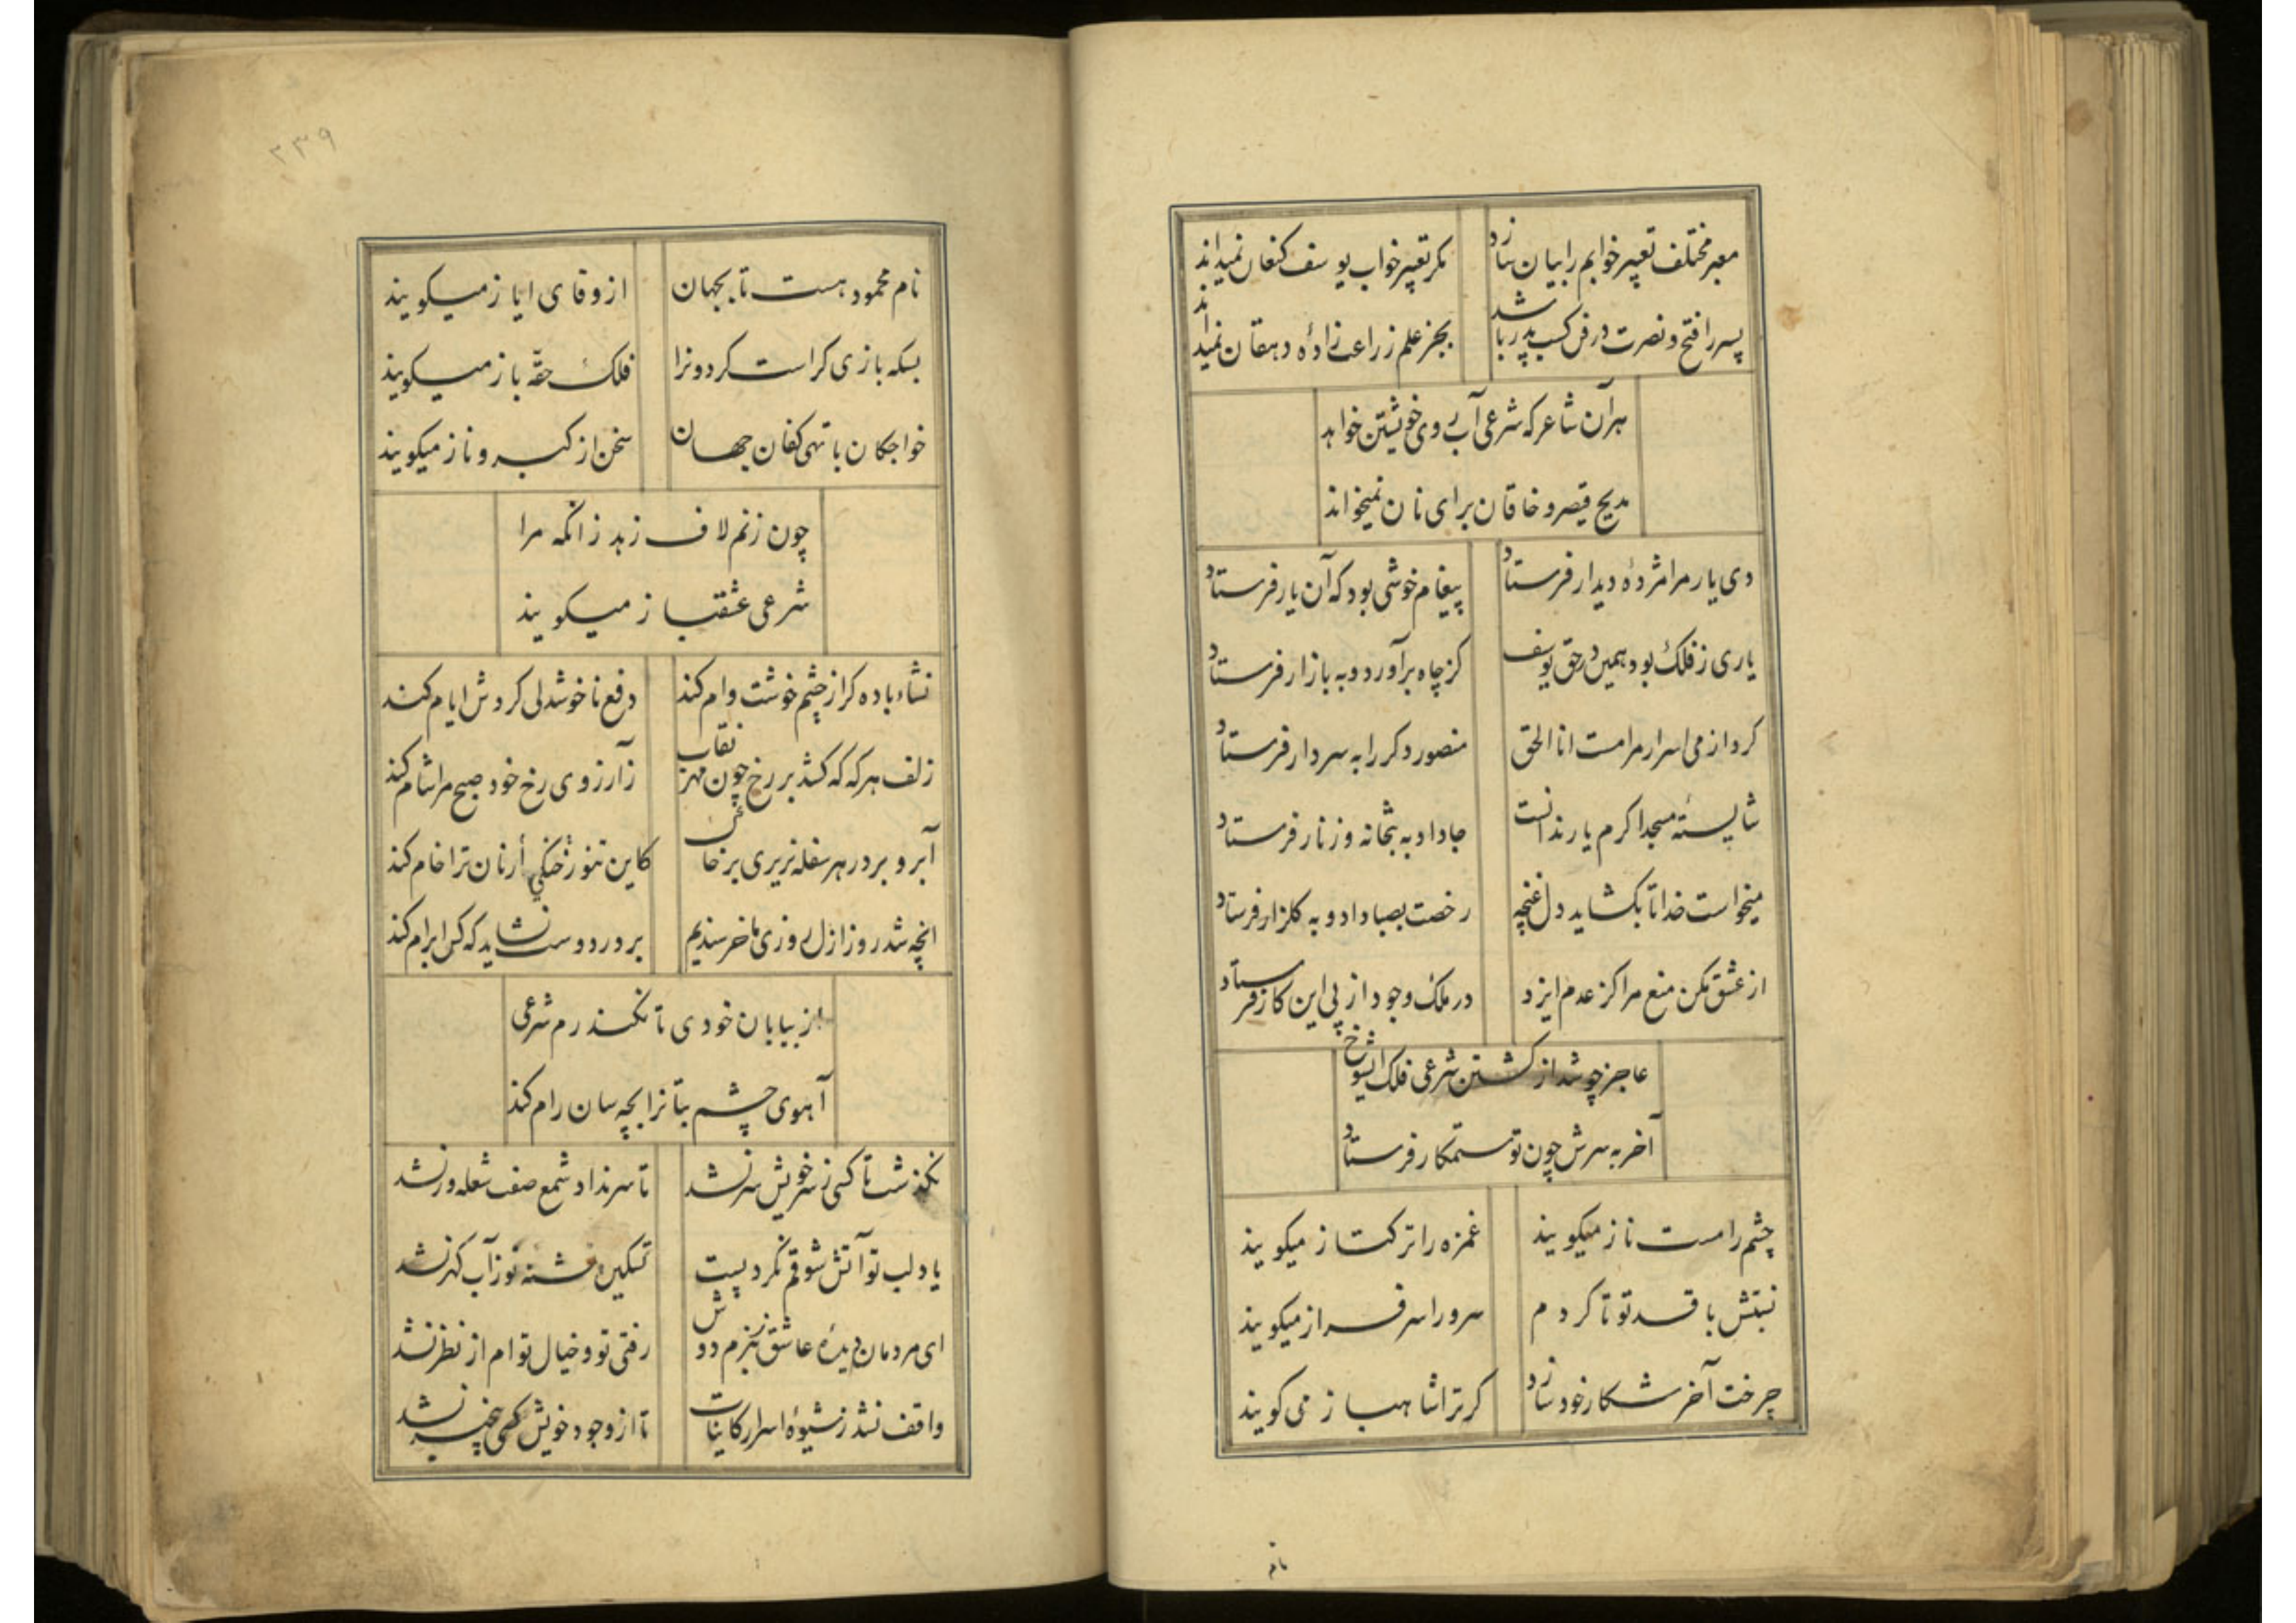 معبر مختلف تعبیر خوابم را بیان سازد مکر تعبیر خواب یوسف کنعان نمیداند
پسر را فتح و نصرت در فن کسب پدر باشد بجز علم زراعت زادهٔ دهقان نمیداند
هر آن شاعر که شرعی آب روی خویشتن خواهد
مدیح قیصر و خاقان برای نان نمیخواند
دی یار مرا مژدهٔ دیدار فرستاد پیغام خوشی بود که آن یار فرستاد
یاری ز فلک بود همین در حق یوسف کز چاه برآورد و به بازار فرستاد
کرد از می اسرار مرا مست انا الحق منصور دکر را به سر دار فرستاد
شایستهٔ مسجد اکرم یار ندانست جا داد به بتخانه و زنار فرستاد
میخواست خدا تا بکشاید دل غنچه رخصت بصبا داد و به کلزار فرستاد
از عشق مکن منع مرا کز عدم ایزد در ملک وجود از پی این کار فرستاد
عاجز چو شد از کشتن شرعی فلک ای شوخ
آخر به سرش چون تو ستمکار فرستاد
چشم را مست ناز میکویند غمزه را ترکتاز میکویند
نسبتش با قد تو تا کردم سرو را سرفراز میکویند
چرخت آخر شکار خود سازد کر ترا شاهباز می کویند
نام
۲۳۹
نام محمود هست تا بجهان از وفای ایاز میکویند
بسکه بازی کر است کردونرا فلک حقّه باز میکویند
خواجکان با تهی کفان جهان سخن از کبر و ناز میکویند
چون زنم لاف زهد زانکه مرا
شرعی عشقباز میکویند
نشاء باده کر از چشم خوشت وام کند دفع ناخوشدلی کردش ایام کند
زلف هر که که کشد بر رخ چون مهر نقاب ز آرزوی رخ خود صبح مرا شام کند
آبرو بر در هر سفله نریزی بر خاک کاین تنور خنکی ار نان ترا خام کند
انچه شد روز ازل روزی ما خرسندیم بر در دوست نشاید که کس ابرام کند
از بیابان خودی تا نکند رم شرعی
آهوی چشم بتانرا بچه سان رام کند
نکذشت تا کسی ز سر خویش سر نشد تا سر نداد شمع صفت شعله ور نشد
یاد لب تو آتش شوقم نکرد پست تسکین تشنه تو ز آب کهر نشد
ای مردمان دیدهٔ عاشق ز بزم دوش رفتی تو و خیال توام از نظر نشد
واقف نشد ز شیوهٔ اسرار کاینات تا از وجود خویش کسی بیخبر نشد